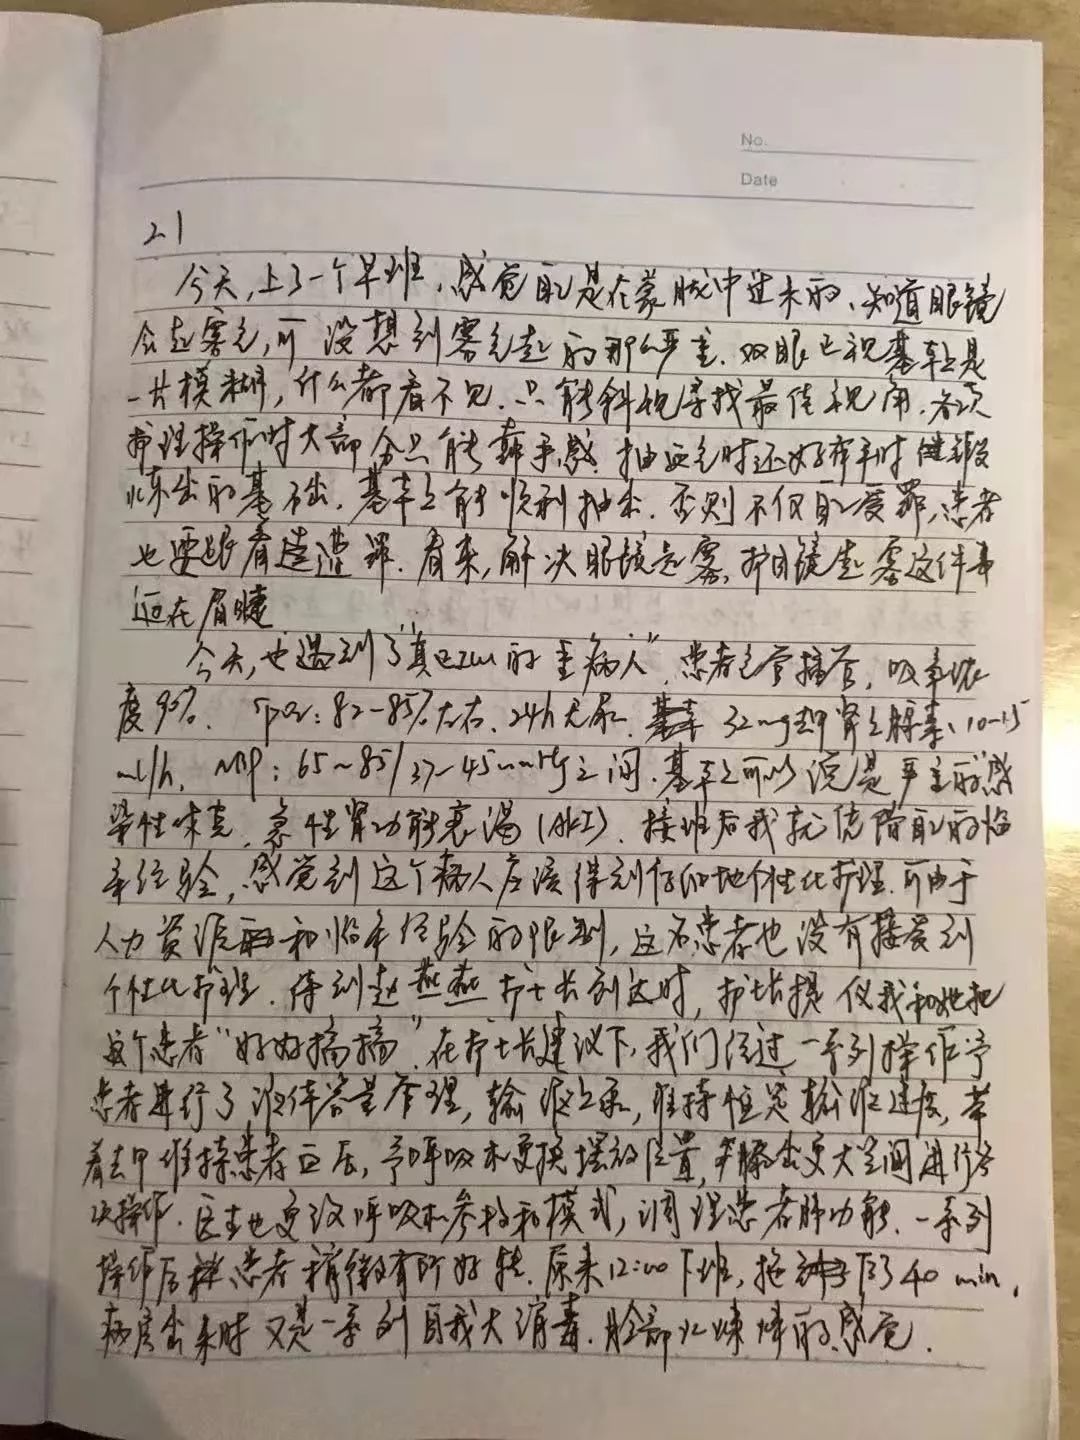 No.
Date
21
今天,上了一个早班,感觉自己是在蒙胧中过来的、知道眼镜
会起雾气,可没想到雾气起的那么严重.双眼正视基本上是
一片模糊,什么都看不见.只能斜视寻找最佳视角.各项
护理操作时大部分只能靠手感.抽血气时还好有平时锻
炼出的基础.基本上能顺利抽出.否则不仅自己受罪,患者
也要跟着遭罪.看来,解决眼镜起雾,护目镜起雾这件事
迫在眉睫
今天,也遇到了"真正ICU的重病人",患者气管插管,吸氧浓
度90%.SPO2:82-85%左右.24h无尿.32mg去甲肾上腺素、10-15
ml/h,MAP:65~85/37-45mmHg之间.基本上可以说是严重的感
染性休克,急性肾功能衰竭(AKI).接班后我就凭借自己的临
床经验,感觉到这个病人应该得到仔细地个性化护理.可由于
人力资源和临床经验的限制,这名患者也没有接受到
个性化护理.等到赵燕燕护士长到达时,护士长提议我和她把
这个患者"好好搞搞".在护士长建议下,我们经过一系列操作予
患者进行了液体容量管理,输液,维持恒定输液速度,带
着去甲维持患者血压,予呼吸机更换摆放位置,并腾出更大空间进行各
次操作.医生也更改呼吸机参数和模式,调理患者肺功能.一系列
操作后患者稍微有所好转.原来12:00下班,拖班了40 min,
病房出来时又是一系列自我大消毒.脸部火辣辣的感觉.